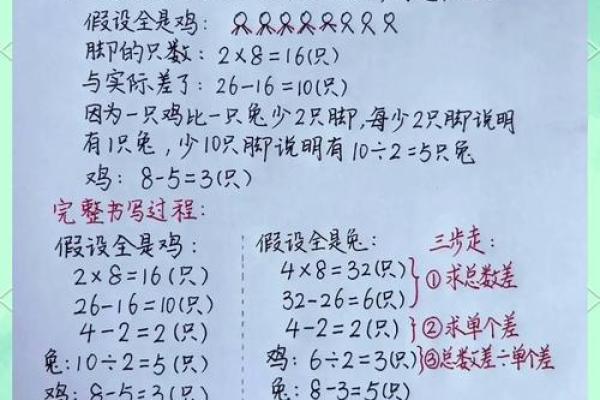 假设全是鸡:
脚的只数: 2×8=16(只)
与实际差了: 26-16=10(只)
因为一只鸡比一只兔少2只脚,每少2只脚说明
有1只兔, 少10只脚说明有10÷2=5只兔
鸡: 8-5=3(只)
完整书写过程:
假设全是鸡:
2×8=16(只)
26-16=10(只)
4-2=2(只)
兔:10÷2=5(只)
鸡: 8-5=3(只)
假设全是兔:
4×8=32(只)
32-26=6(只)
4-2=2(只)
鸡: 6÷2=3(只)
兔: 8-3=5(只)
三步走:
①求总数差
②求单个差
③总数差÷单个差